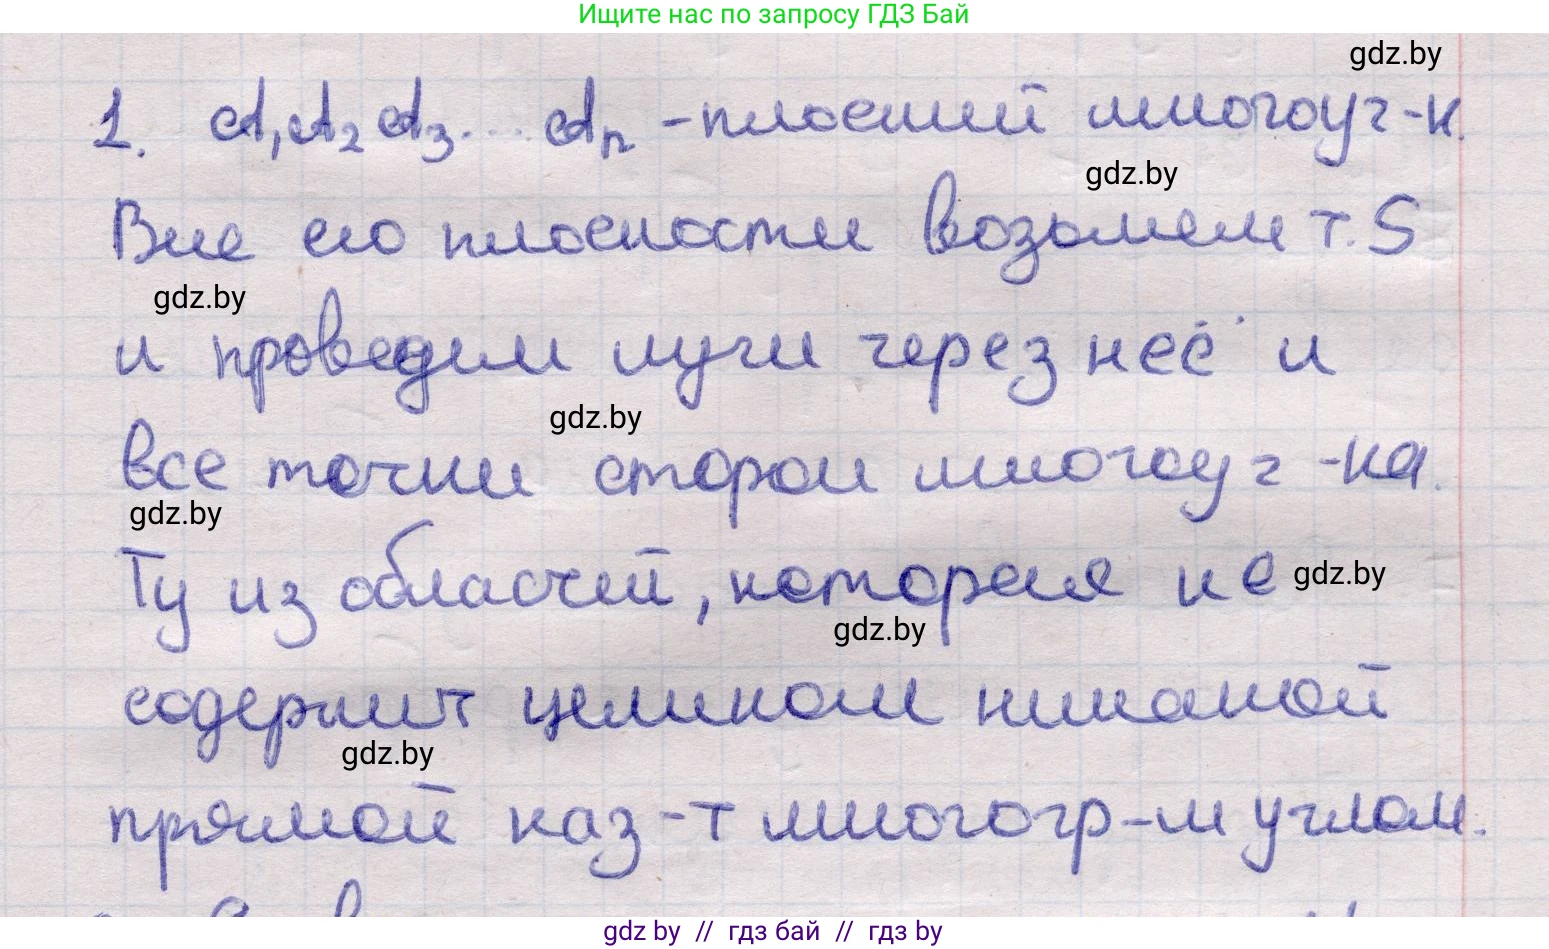 Ищите нас по запросу ГДЗ Бай
gdz.by
1. A₁A₂A₃... Aₙ - плоский многоуг-к.
gdz.by
Вне его плоскости возьмем т. S
gdz.by
и проведём лучи через неё и
gdz.by
все точки сторон многоуг-ка.
gdz.by
Ту из областей, которая не
gdz.by
gdz.by
содержит целиком никакой
gdz.by
прямой наз-т многогр-м углом.
gdz by // гдз бай // гдз by